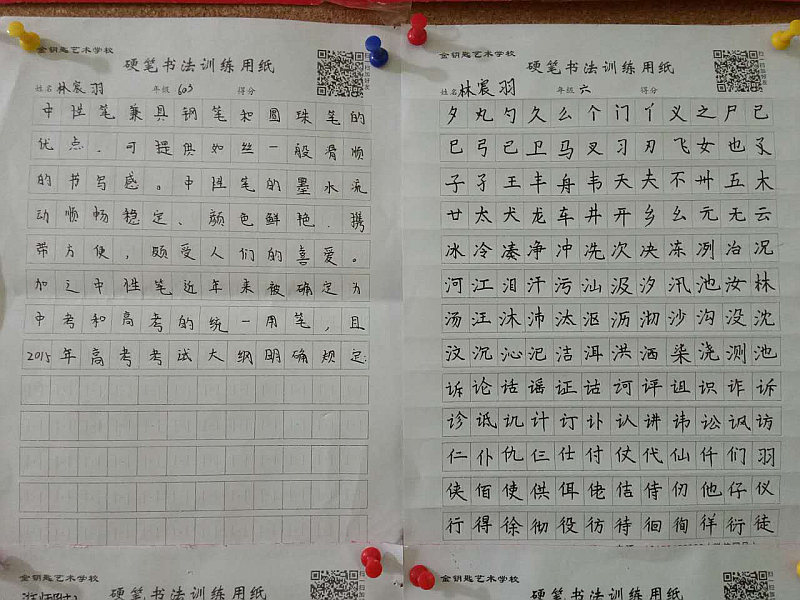 金钥匙艺术学校
硬笔书法训练用纸
姓名 林宸羽 年级 603 得分
扫一扫加好友
中性笔兼具钢笔和圆珠笔的
优点。可提供如丝一般滑顺
的书写感。中性笔的墨水流
动顺畅稳定、颜色鲜艳.携
带方便，颇受人们的喜爱。
加之中性笔近年来被确定为
中考和高考的统一用笔，且
2015年高考考试大纲明确规定:
金钥匙艺术学校
硬笔书法训练用纸
姓名 林宸羽 年级 六 得分
扫一扫加好友
夕丸勺久么个门丫义之尸已
巳弓己卫马叉习刃飞女也孓
子孑王丰舟韦天夫不卅五木
廿太犬龙车井开乡幺元无云
冰冷凑净冲冼次决冻冽冶况
河江泪汗污汕汲汐汛池汝林
汤汪沐沛汰沤沥沏沙沟没沈
汶沉沁汜洁洱洪洒染浇测池
诉论诘谣证诂诃评诅识诈诉
诊诋讥计订讣认讲讳讼讽访
仁仆仇仨仕付仗代仙仟们羽
侠佰使供佴佬佶侍仞他仔仪
行得徐彻役彷待徊徇徉衍徒
金钥匙艺术学校
硬笔书法训练用纸
金钥匙艺术学校
硬笔书法训练用纸